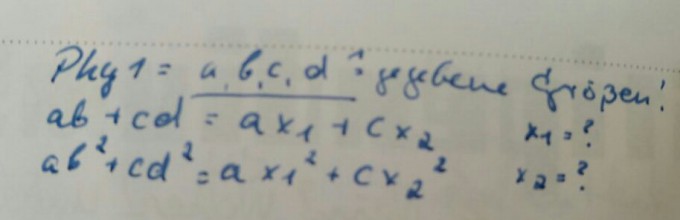 Phy 1 = a, b, c, d : gegebene Größen!
ab + cd = ax₁ + cx₂ x₁ = ?
ab² + cd² = ax₁² + cx₂² x₂ = ?